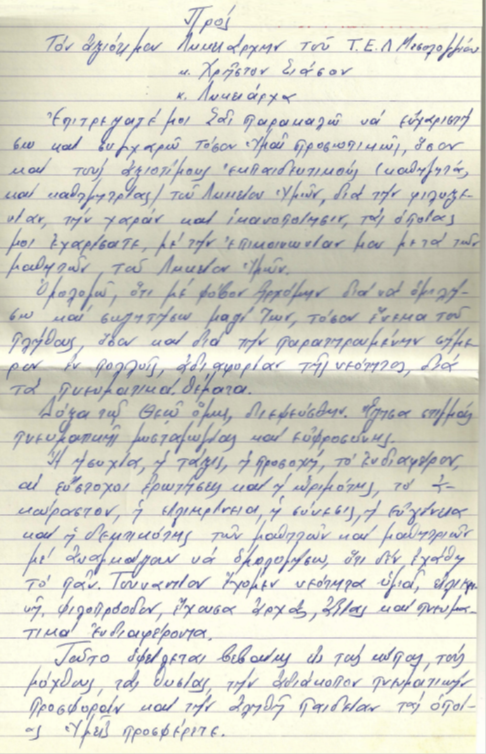 Πρός
Τόν ἀξιότιμον Λυκειάρχην τοῦ Τ.Ε.Λ Μεσολογγίου
κ. Χρῆστον Σιάσον
κ. Λυκειάρχα
Ἐπιτρέψατέ μοι Σᾶς παρακαλῶ νά εὐχαριστή-
σω καί συγχαρῶ τόσον Ὑμᾶς προσωπικῶς, ὅσον
καί τούς ἀξιοτίμους ἐκπαιδευτικούς (καθηγητάς
καί καθηγητρίας) τοῦ Λυκείου Ὑμῶν, διά τήν φιλοξε-
νίαν, τήν χαράν καί ἱκανοποίησιν, τάς ὁποίας
μοι ἐχαρίσατε, μέ τήν ἐπικοινωνίαν μου μετά τῶν
μαθητῶν τοῦ Λυκείου Ὑμῶν.
Ὁμολογῶ, ὅτι μέ φόβον ἠρχόμην διά νά ὁμιλή-
σω καί συζητήσω μαζί των, τόσον ἕνεκα τοῦ
πλήθους, ὅσον καί διά τήν παρατηρουμένην σήμε-
ρον ἐν πολλοῖς, ἀδιαφορίαν τῆς νεότητος, διά
τά πνευματικά θέματα.
Δόξα τῷ Θεῷ ὅμως, διεψεύσθην. Ἔζησα στιγμάς
πνευματικῆς μυσταγωγίας καί εὐφροσύνης.
Ἡ ἡσυχία, ἡ τάξις, ἡ προσοχή, τό ἐνδιαφέρον,
αἱ εὔστοχοι ἐρωτήσεις καί ἡ ὡριμότης, τό ἀ-
κούραστον, ἡ εἰλικρίνεια, ἡ σύνεσις, ἡ εὐγένεια
καί ἡ δεκτικότης τῶν μαθητῶν καί μαθητριῶν
μέ ἀναγκάζουν νά ὁμολογήσω, ὅτι δέν ἐχάθη
τό πᾶν. Τοὐναντίον ἔχομεν νεότητα ὑγιᾶ, εἰλικρι-
νῆ, φιλοπρόοδον, ἔχουσα ἀρχάς, ἀξίας καί πνευμα-
τικά ἐνδιαφέροντα.
Τοῦτο ὀφείλεται βεβαίως εἰς τούς κόπους, τούς
μόχθους, τάς θυσίας, τήν ἀδιάκοπον πνευματικήν
προσφοράν καί τήν ἀληθῆ παιδείαν τάς ὁποί-
ας Ὑμεῖς προσφέρετε.